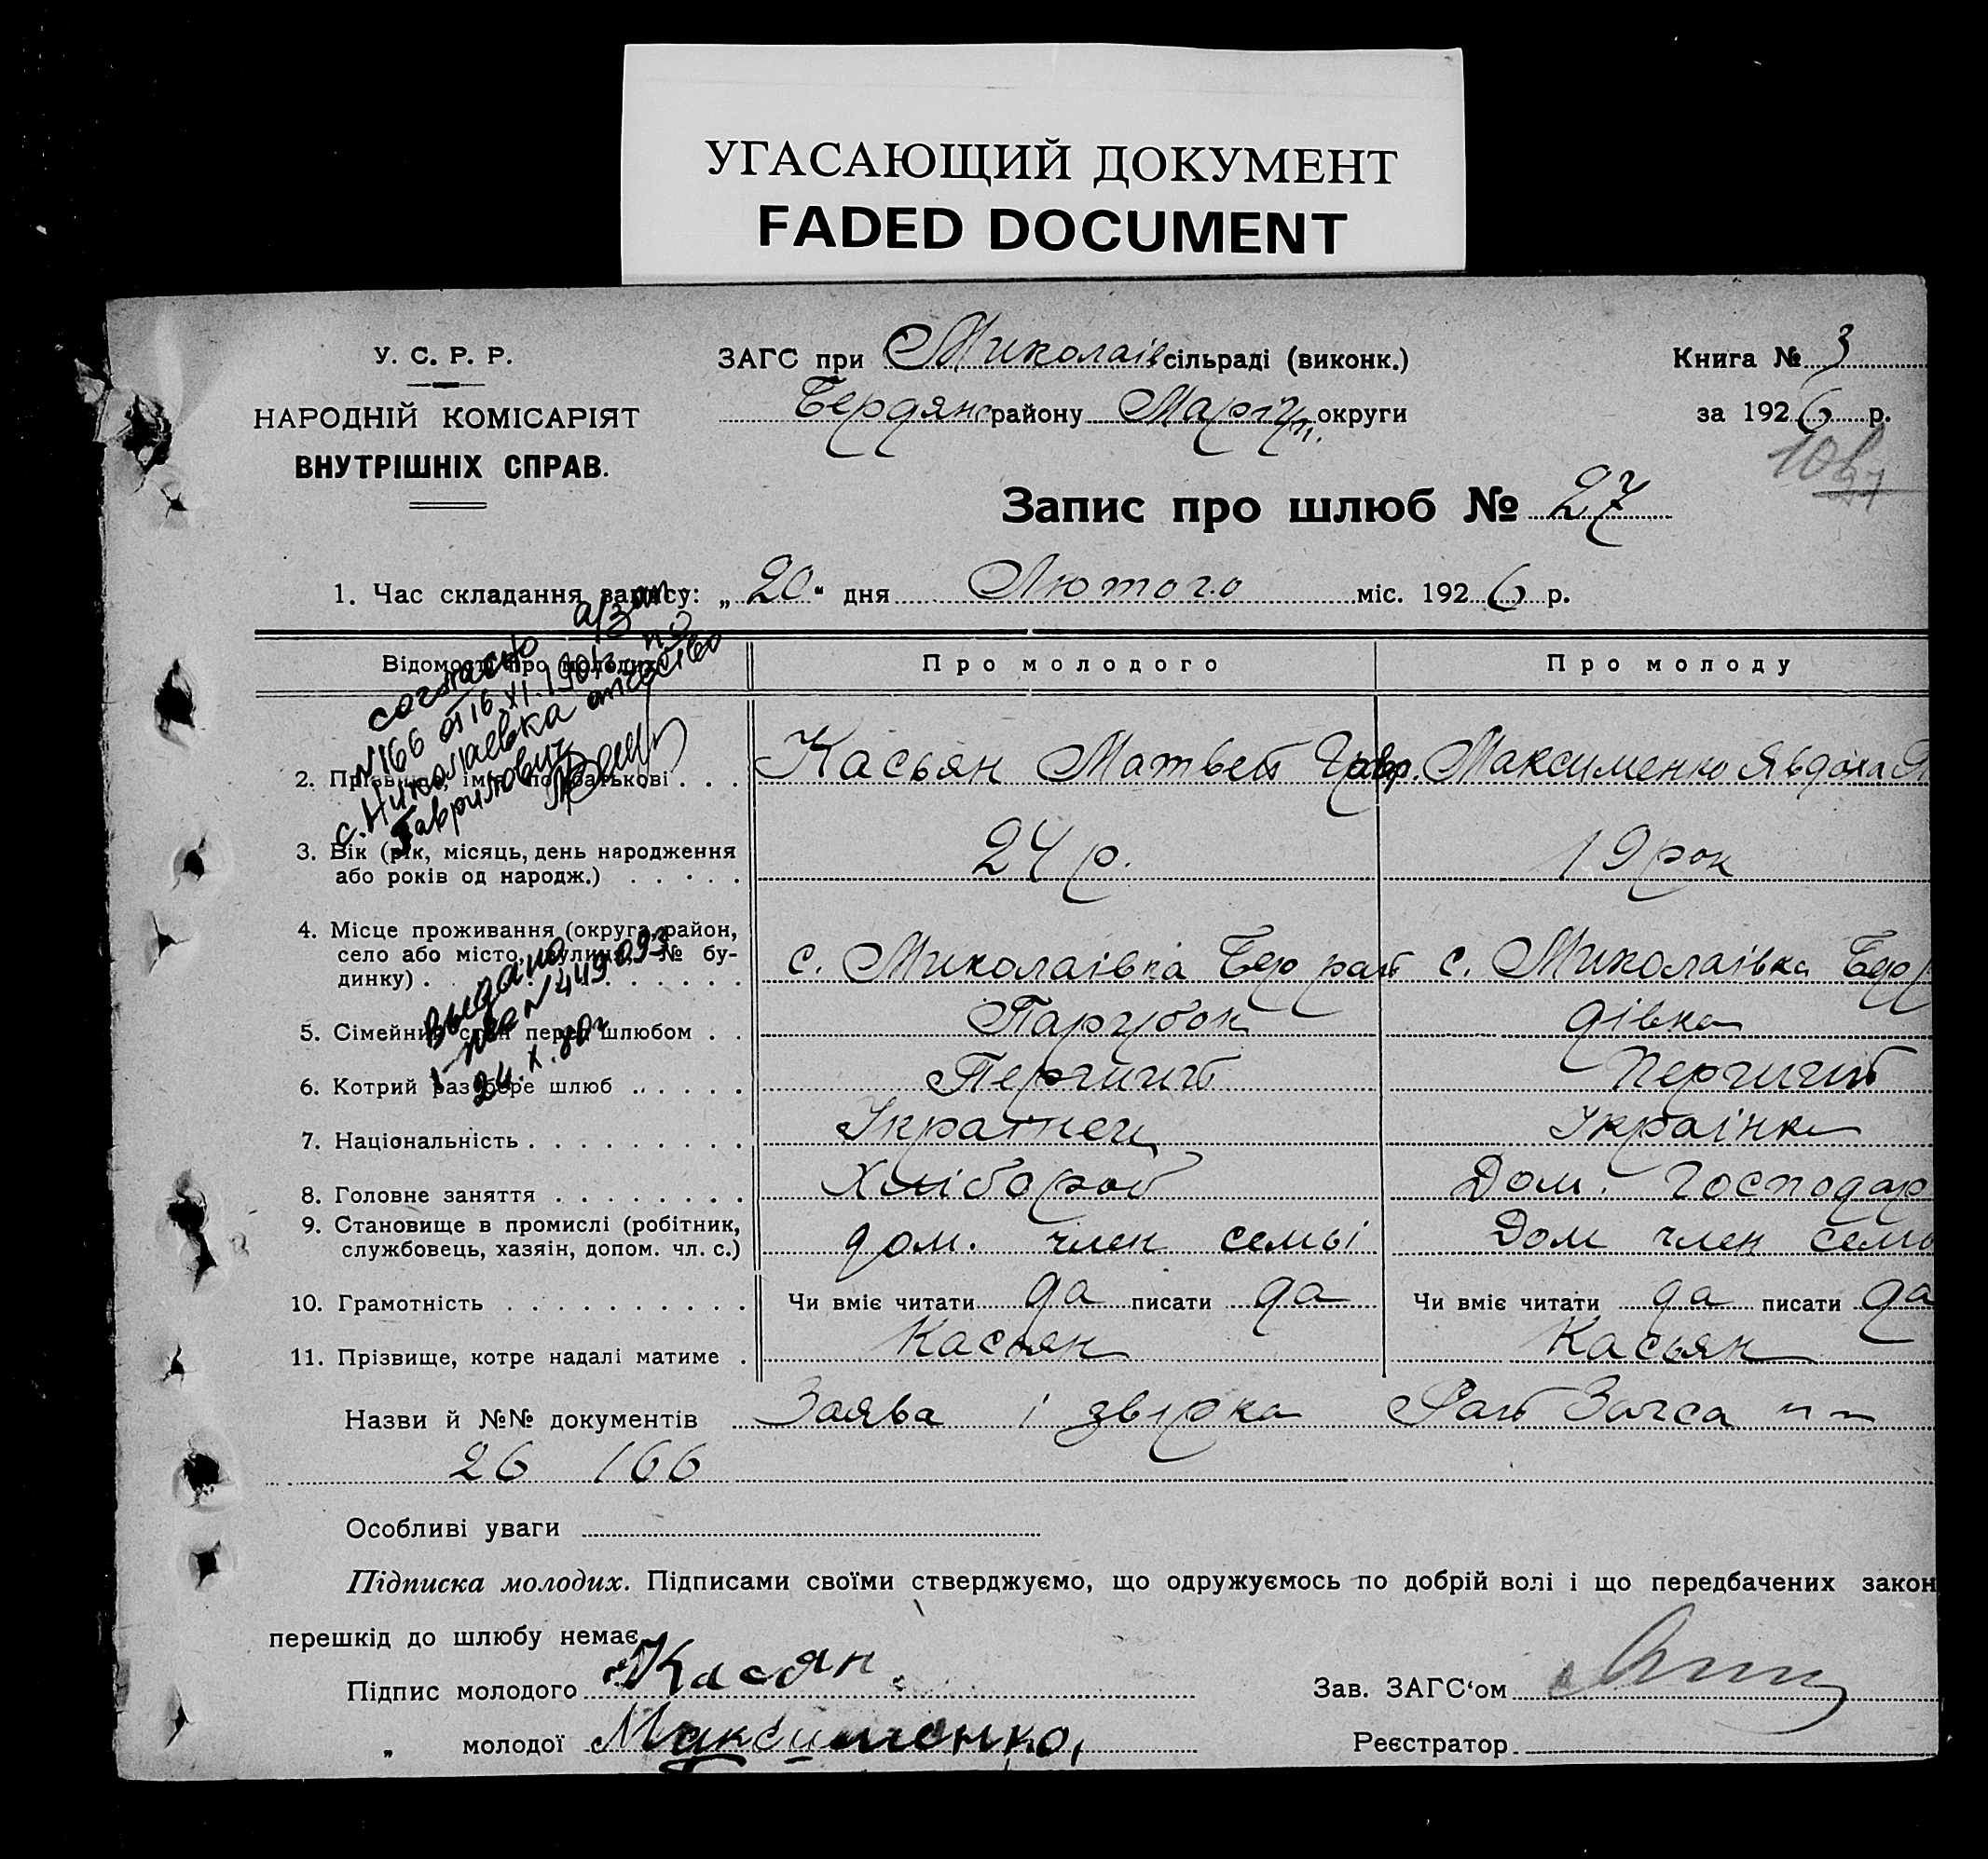 УГАСАЮЩИЙ ДОКУМЕНТ
FADED DOCUMENT
У. С. Р. Р.
НАРОДНІЙ КОМІСАРІЯТ
ВНУТРІШНІХ СПРАВ.
ЗАГС при Миколаів сільраді (виконк.)
Бердянс району Маріуп. округи
Книга № 3
за 1926 р.
Запис про шлюб № 27
1. Час складання запису: „20" дня Лютого міс. 1926 р.
Відомості про молодих Про молодого Про молоду
согласно а/зап
№166 от 16.XI.190 по
с. Николаевка отчество
Гаврилович
2. Прізвище, ім'я, по батькові . . . Касьян Матвей Гавр. Максименко Явдоха
3. Вік (рік, місяць, день народження
або років од народж.) . . . . . 24 р. 19 рок
4. Місце проживання (округа, район,
село або місто, вулиця, № бу-
динку) . . . с. Миколаівка Бер рай с. Миколаівка Бер
Выдано
№ 449093
24.X.80г
5. Сімейний стан перед шлюбом . . Парубок дівка
6. Котрий раз бере шлюб . . . . . Перший Перший
7. Національність . . . . . . . . . Украінец Украінка
8. Головне заняття . . . . . . . . Хлібороб Дом. Господар
9. Становище в промислі (робітник,
службовець, хазяін, допом. чл. с.) дом. член семьі Дом член семь
10. Грамотність . . . . . . . . . . Чи вміє читати да писати да Чи вміє читати да писати да
11. Прізвище, котре надалі матиме . Касьян Касьян
Назви й №№ документів Заява і звірка Рай Загса
26 166
Особливі уваги
Підписка молодих. Підписами своїми стверджуємо, що одружуємось по добрій волі і що передбачених закон
перешкід до шлюбу немає.
Підпис молодого Касян
Зав. ЗАГС'ом
„ молодої Максименко,
Реєстратор